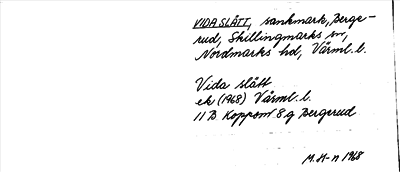 VIDA SLÅTT, sankmark, Berge-
rud, Skillingmarks sn,
Nordmarks hd, Värml. l.
Vida slått
ek (1968) Värml. l.
11 B Koppom 8 g Bergerud
M. H-n 1968